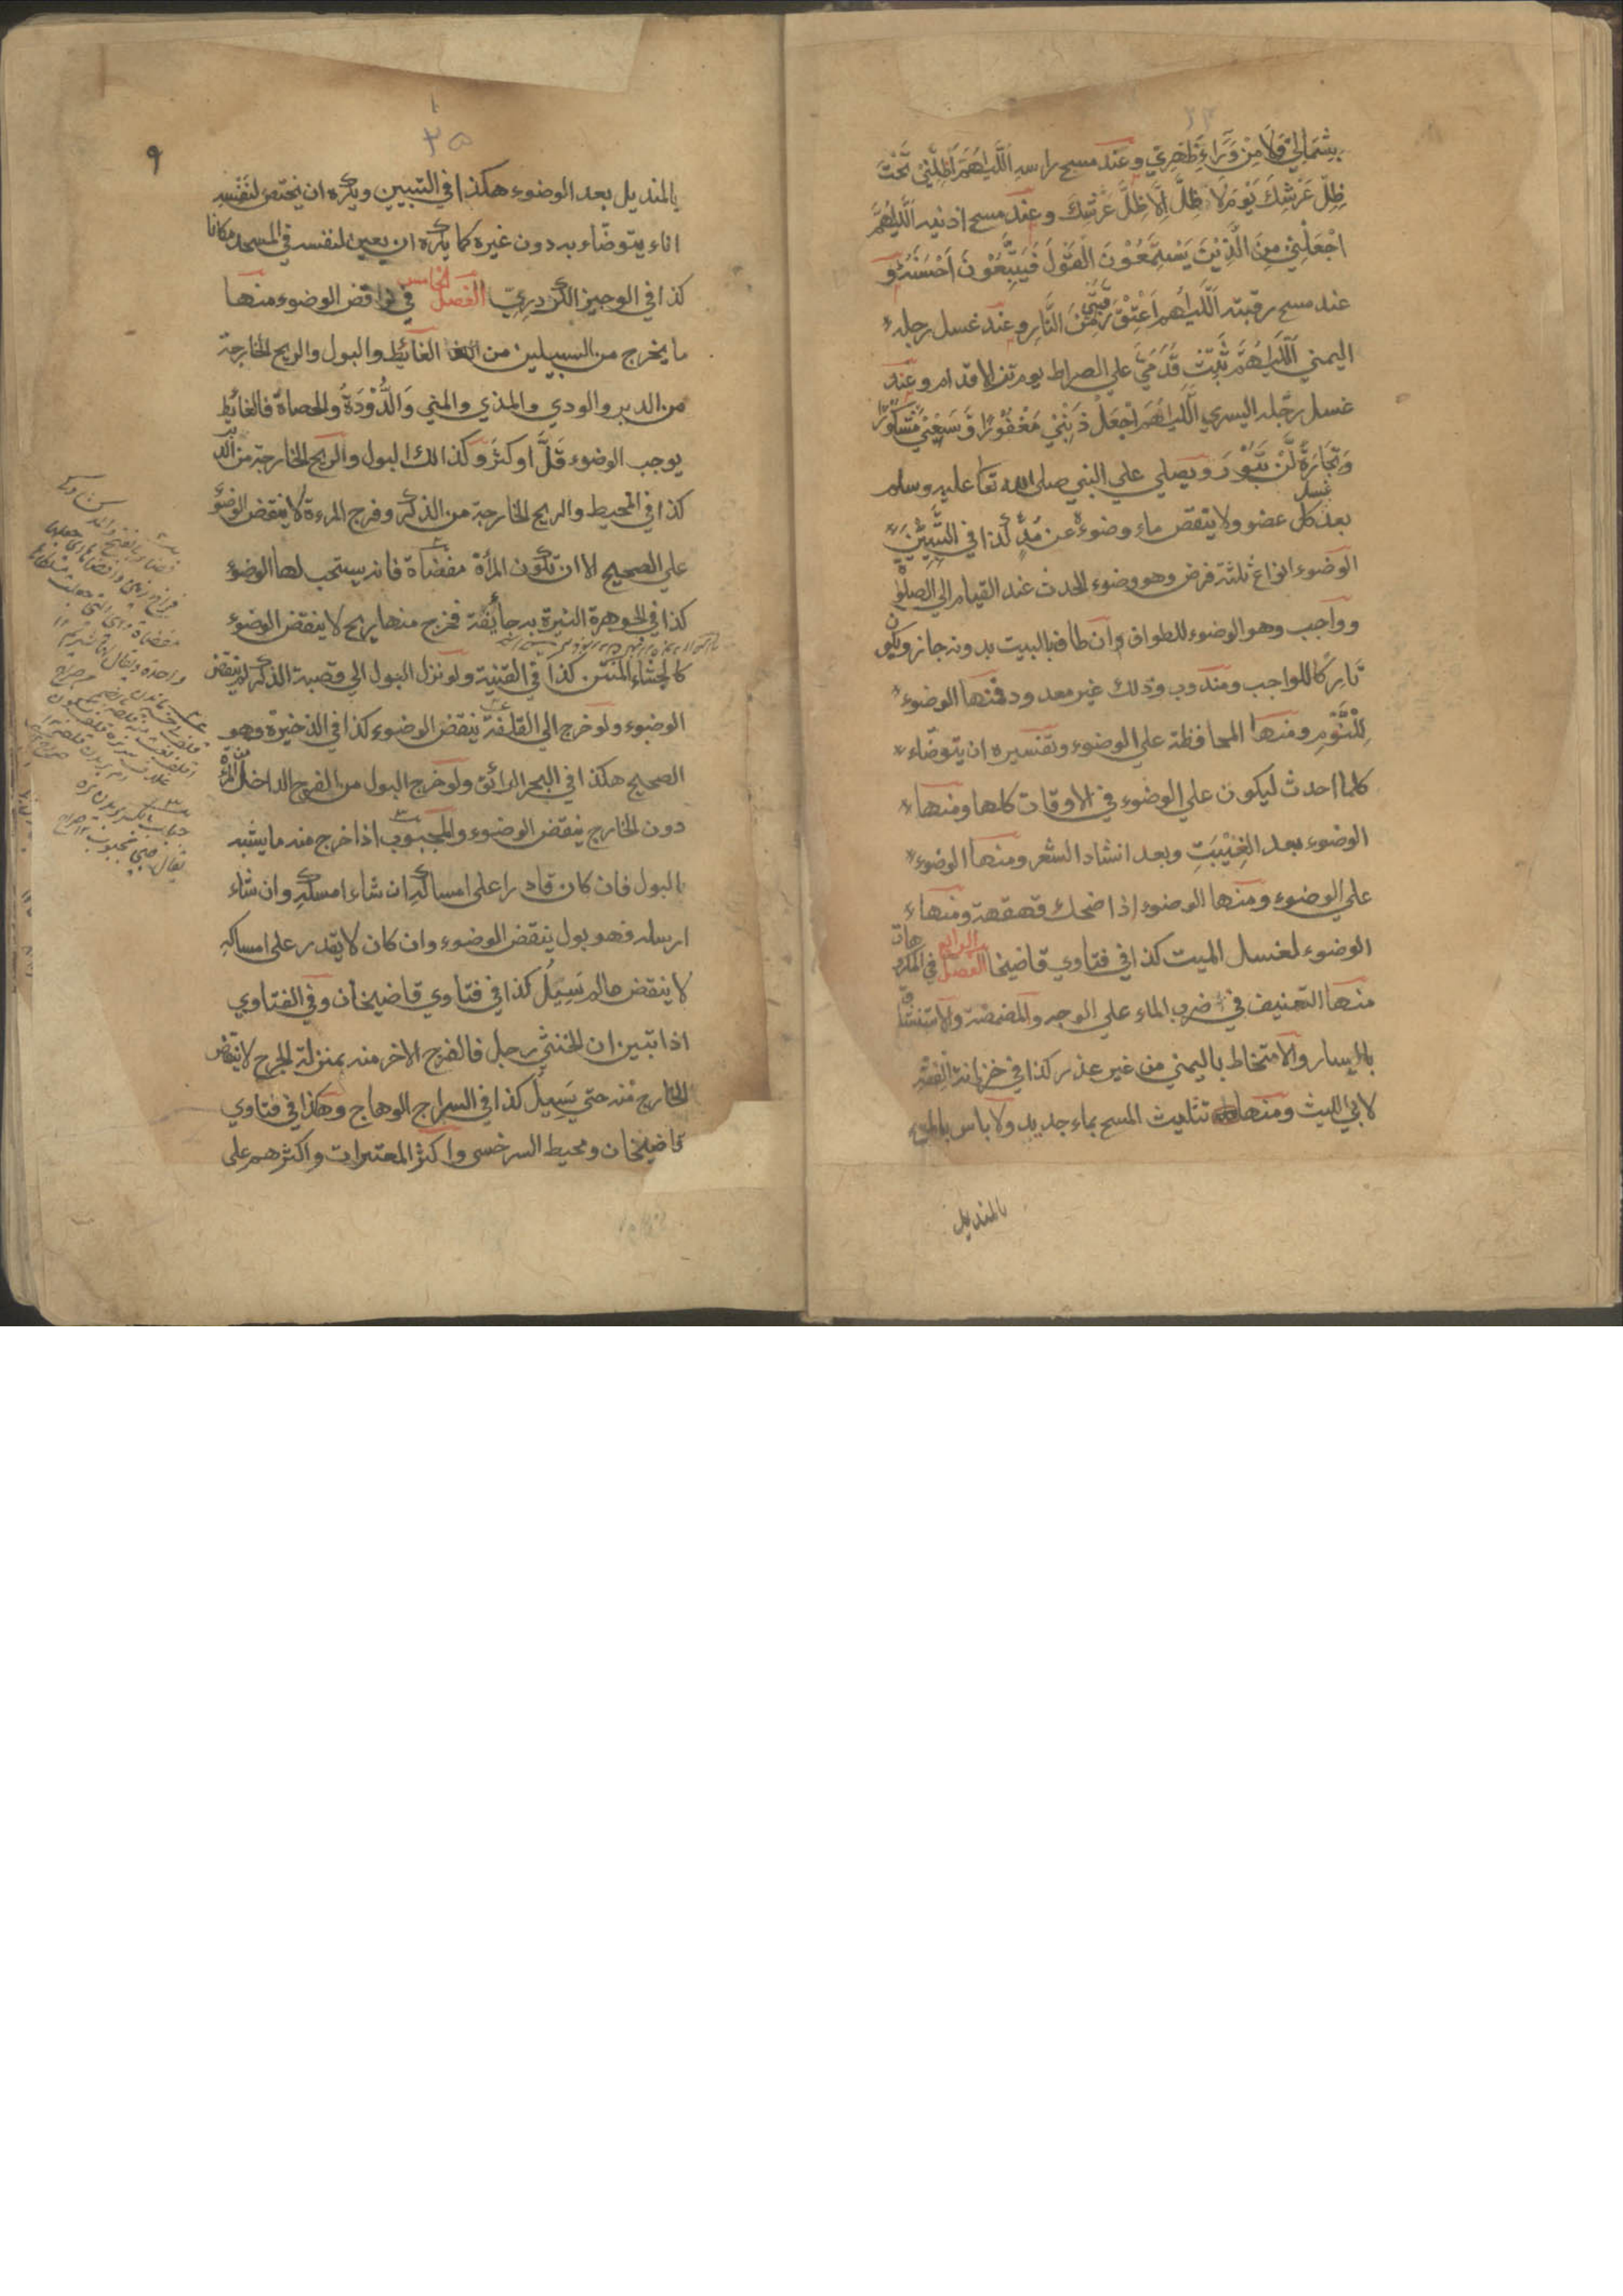 بِشِمَالِيْ وَلَا مِنْ وَّرَاءِ ظَهْرِيْ وعند مسح راسه اَللّٰهُمَّ اَظِلَّنِيْ تَحْتَ
ظِلِّ عَرْشِكَ يَوْمَ لَا ظِلَّ اِلَّا ظِلُّ عَرْشِكَ وعند مسح اذنيه اَللّٰهُمَّ
اجْعَلْنِيْ مِنَ الَّذِيْنَ يَسْتَمِعُوْنَ الْقَوْلَ فَيَتَّبِعُوْنَ اَحْسَنَهُ و
عند مسح رقبته اَللّٰهُمَّ اَعْتِقْ رَقَبَتِيْ مِنَ النَّارِ وعند غسل رجله
اليمني اَللّٰهُمَّ ثَبِّتْ قَدَمِيْ علي الصراط يوم تزل الاقدام وعند
غسل رجله اليسري اَللّٰهُمَّ اجْعَلْ ذَنْبِيْ مَغْفُوْرًا وَّسَعْيِيْ مَشْكُوْرًا
وَتِجَارَةً لَّنْ تَبُوْرَ ويصلي علي النبي صلي الله تعا عليه وسلم
بعد غسل كل عضو ولا ينقص ماء وضوءه عن مُدٍّ كذا في التَّبْيِيْنِ
الوضوء انواع ثلثة فرض وهو وضوء المحدث عند القيام الي الصلوة
وواجب وهو الوضوء للطواف وان طاف بالبيت بدونه جاز ويكون
تَارِكًا للواجب ومندوب وذلك غير معدود فمنها الوضوء
لِلنَّوْمِ ومنها المحافظة علي الوضوء وتفسيره ان يتوضاء
كلما احدث ليكون علي الوضوء في الاوقات كلها ومنها
الوضوء بعد الغِيْبَتِ وبعد انشاد الشعر ومنها الوضوء
علي الوضوء ومنها الوضوء اذا ضحك قهقهة ومنها
الوضوء لغسل الميت كذا في فتاوي قاضيخا الفصل الرابع في المكروهات
منها التعنيف في ضرب الماء علي الوجه والمضمضة والاستنشاق
باليسار والامتخاط باليمني من غير عذر كذا في خزانة الفقه
لابي الليث ومنها تثليث المسح بماء جديد ولا باس بالمسح
بالمنديل
٩
٢٥
بالمنديل بعد الوضوء هكذا في التبيين ويكره ان يختص لنفسه
اناء يتوضاء به دون غيره كما يكره ان يعين لنفسه في المسجد مكانا
كذا في الوجيز الكردري الفصل الخامس في نواقض الوضوء منها
ما يخرج من السبيلين من الغائط والبول والريح الخارجة
من الدبر والودي والمذي والمني وَالدُّوْدَةُ والحصاة فالغائط
يوجب الوضوء قَلَّ او كثر وكذالك البول والريح الخارجة من الدبر
كذا في المحيط والريح الخارجة من الذكر وفرج المرءة لا ينقض الوضوء
علي الصحيح الا ان تكون المرأة مفضاة فانه يستحب لها الوضوء
كذا في الجوهرة النيرة به جائفة فخرج منها ريح لا ينقض الوضوء
كالجشاء المنتن كذا في القنية ولو نزل البول الي قصبة الذكر لم ينقض
الوضوء ولو خرج الي القلفة ينقض الوضوء كذا في الذخيرة وهو
الصحيح هكذا في البحر الرائق ولو خرج البول من الفرج الداخل من المرأة
دون الخارج ينقض الوضوء والمجبوب اذا خرج منه ما يشبه
بالبول فان كان قادرا علي امساكه ان شاء امسكه وان شاء
ارسله فهو بول ينقض الوضوء وان كان لا يقدر علي امساكه
لا ينقض مالم يَسِيْلُ كذا في فتاوي قاضيخان وفي الفتاوي
اذا تبين ان الخنثي رجل فالفرج الاخر منه بمنزلة الجرح لا ينقض
الخارج منه حتي يَسِيْلُ كذا في السراج الوهاج وهكذا في فتاوي
قاضيخان ومحيط السرخسي واكثر المعتبرات واكثرهم علي